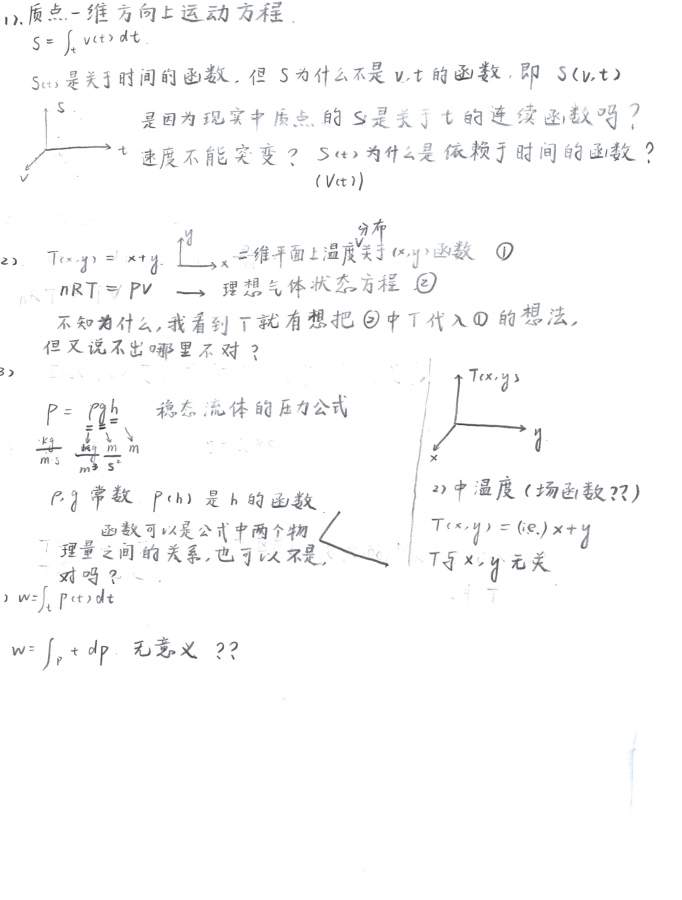 1). 质点一维方向上运动方程.
S = ∫ₜ v(t) dt.
S(t) 是关于时间的函数. 但 S 为什么不是 v, t 的函数. 即 S(v,t)
S
是因为现实中质点的 S 是关于 t 的连续函数吗?
t
速度不能突变? S(t) 为什么是依赖于时间的函数?
v
(V(t))
分布
2) T(x,y) = x+y. y x 二维平面上温度关于(x,y)函数 ①
nRT = PV → 理想气体状态方程 ②
不知为什么,我看到 T 就有想把 ② 中 T 代入 ① 的想法,
但又说不出哪里不对?
3)
P = ρgh 稳态流体的压力公式
kg/ms kg/m³ m/s² m
ρ, g 常数 p(h) 是 h 的函数.
函数可以是公式中两个物
理量之间的关系, 也可以不是,
对吗?
T(x,y)
y
x
2) 中温度 (场函数??)
T(x,y) = (i.e.) x+y
T与 x, y 无关
) w=∫ₜ p(t) dt
w= ∫ₚ t dp. 无意义 ??